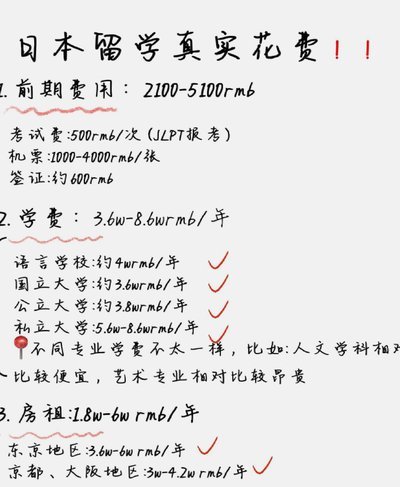 日本留学真实花费！！
1. 前期费用：2100-5100rmb
考试费:500rmb/次 (JLPT报考)
机票:1000-4000rmb/张
签证:约600rmb
2. 学费：3.6w-8.6wrmb/年
语言学校:约4wrmb/年
国立大学:约3.6wrmb/年
公立大学:约3.8wrmb/年
私立大学:5.6w-8.6wrmb/年
不同专业学费不太一样，比如:人文学科相对
比较便宜，艺术专业相对比较昂贵
3. 房租:1.8w-6w rmb/年
东京地区:3.6w-6w rmb/年
京都、大阪地区:3w-4.2w rmb/年